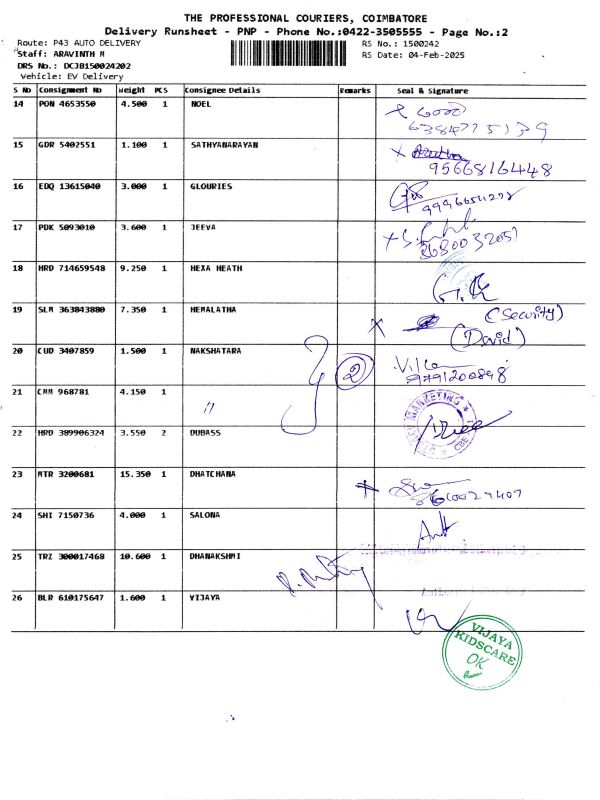 THE PROFESSIONAL COURIERS, COIMBATORE
Delivery Runsheet - PNP - Phone No.:0422-3505555 - Page No.:2
Route: P43 AUTO DELIVERY RS No.: 1500242
Staff: ARAVINTH M RS Date: 04-Feb-2025
DRS No.: DCJB150024202
Vehicle: EV Delivery
S No Consignment No Weight PCS Consignee Details Remarks Seal & Signature
14 PON 4653550 4.500 1 NOEL
6384775139
15 GDR 5402551 1.100 1 SATHYANARAYAN
9566816448
16 EDQ 13615040 3.000 1 GLOURIES
17 PDK 5093010 3.600 1 JEEVA
8680032051
18 HRD 714659548 9.250 1 HEXA HEATH
19 SLM 363843880 7.350 1 HEMALATHA
(Security)
(David)
20 CUD 3407859 1.500 1 NAKSHATARA 2
9791200898
21 CMM 968781 4.150 1 "
MARKETING
22 HRD 389906324 3.550 2 DUBASS
CBE
23 MTR 3200681 15.350 1 DHATCHANA
24 SHI 7150736 4.000 1 SALONA
25 TRZ 300017468 10.600 1 DHANAKSHMI
26 BLR 610175647 1.600 1 VIJAYA
VIJAYA
KIDSCARE
OK